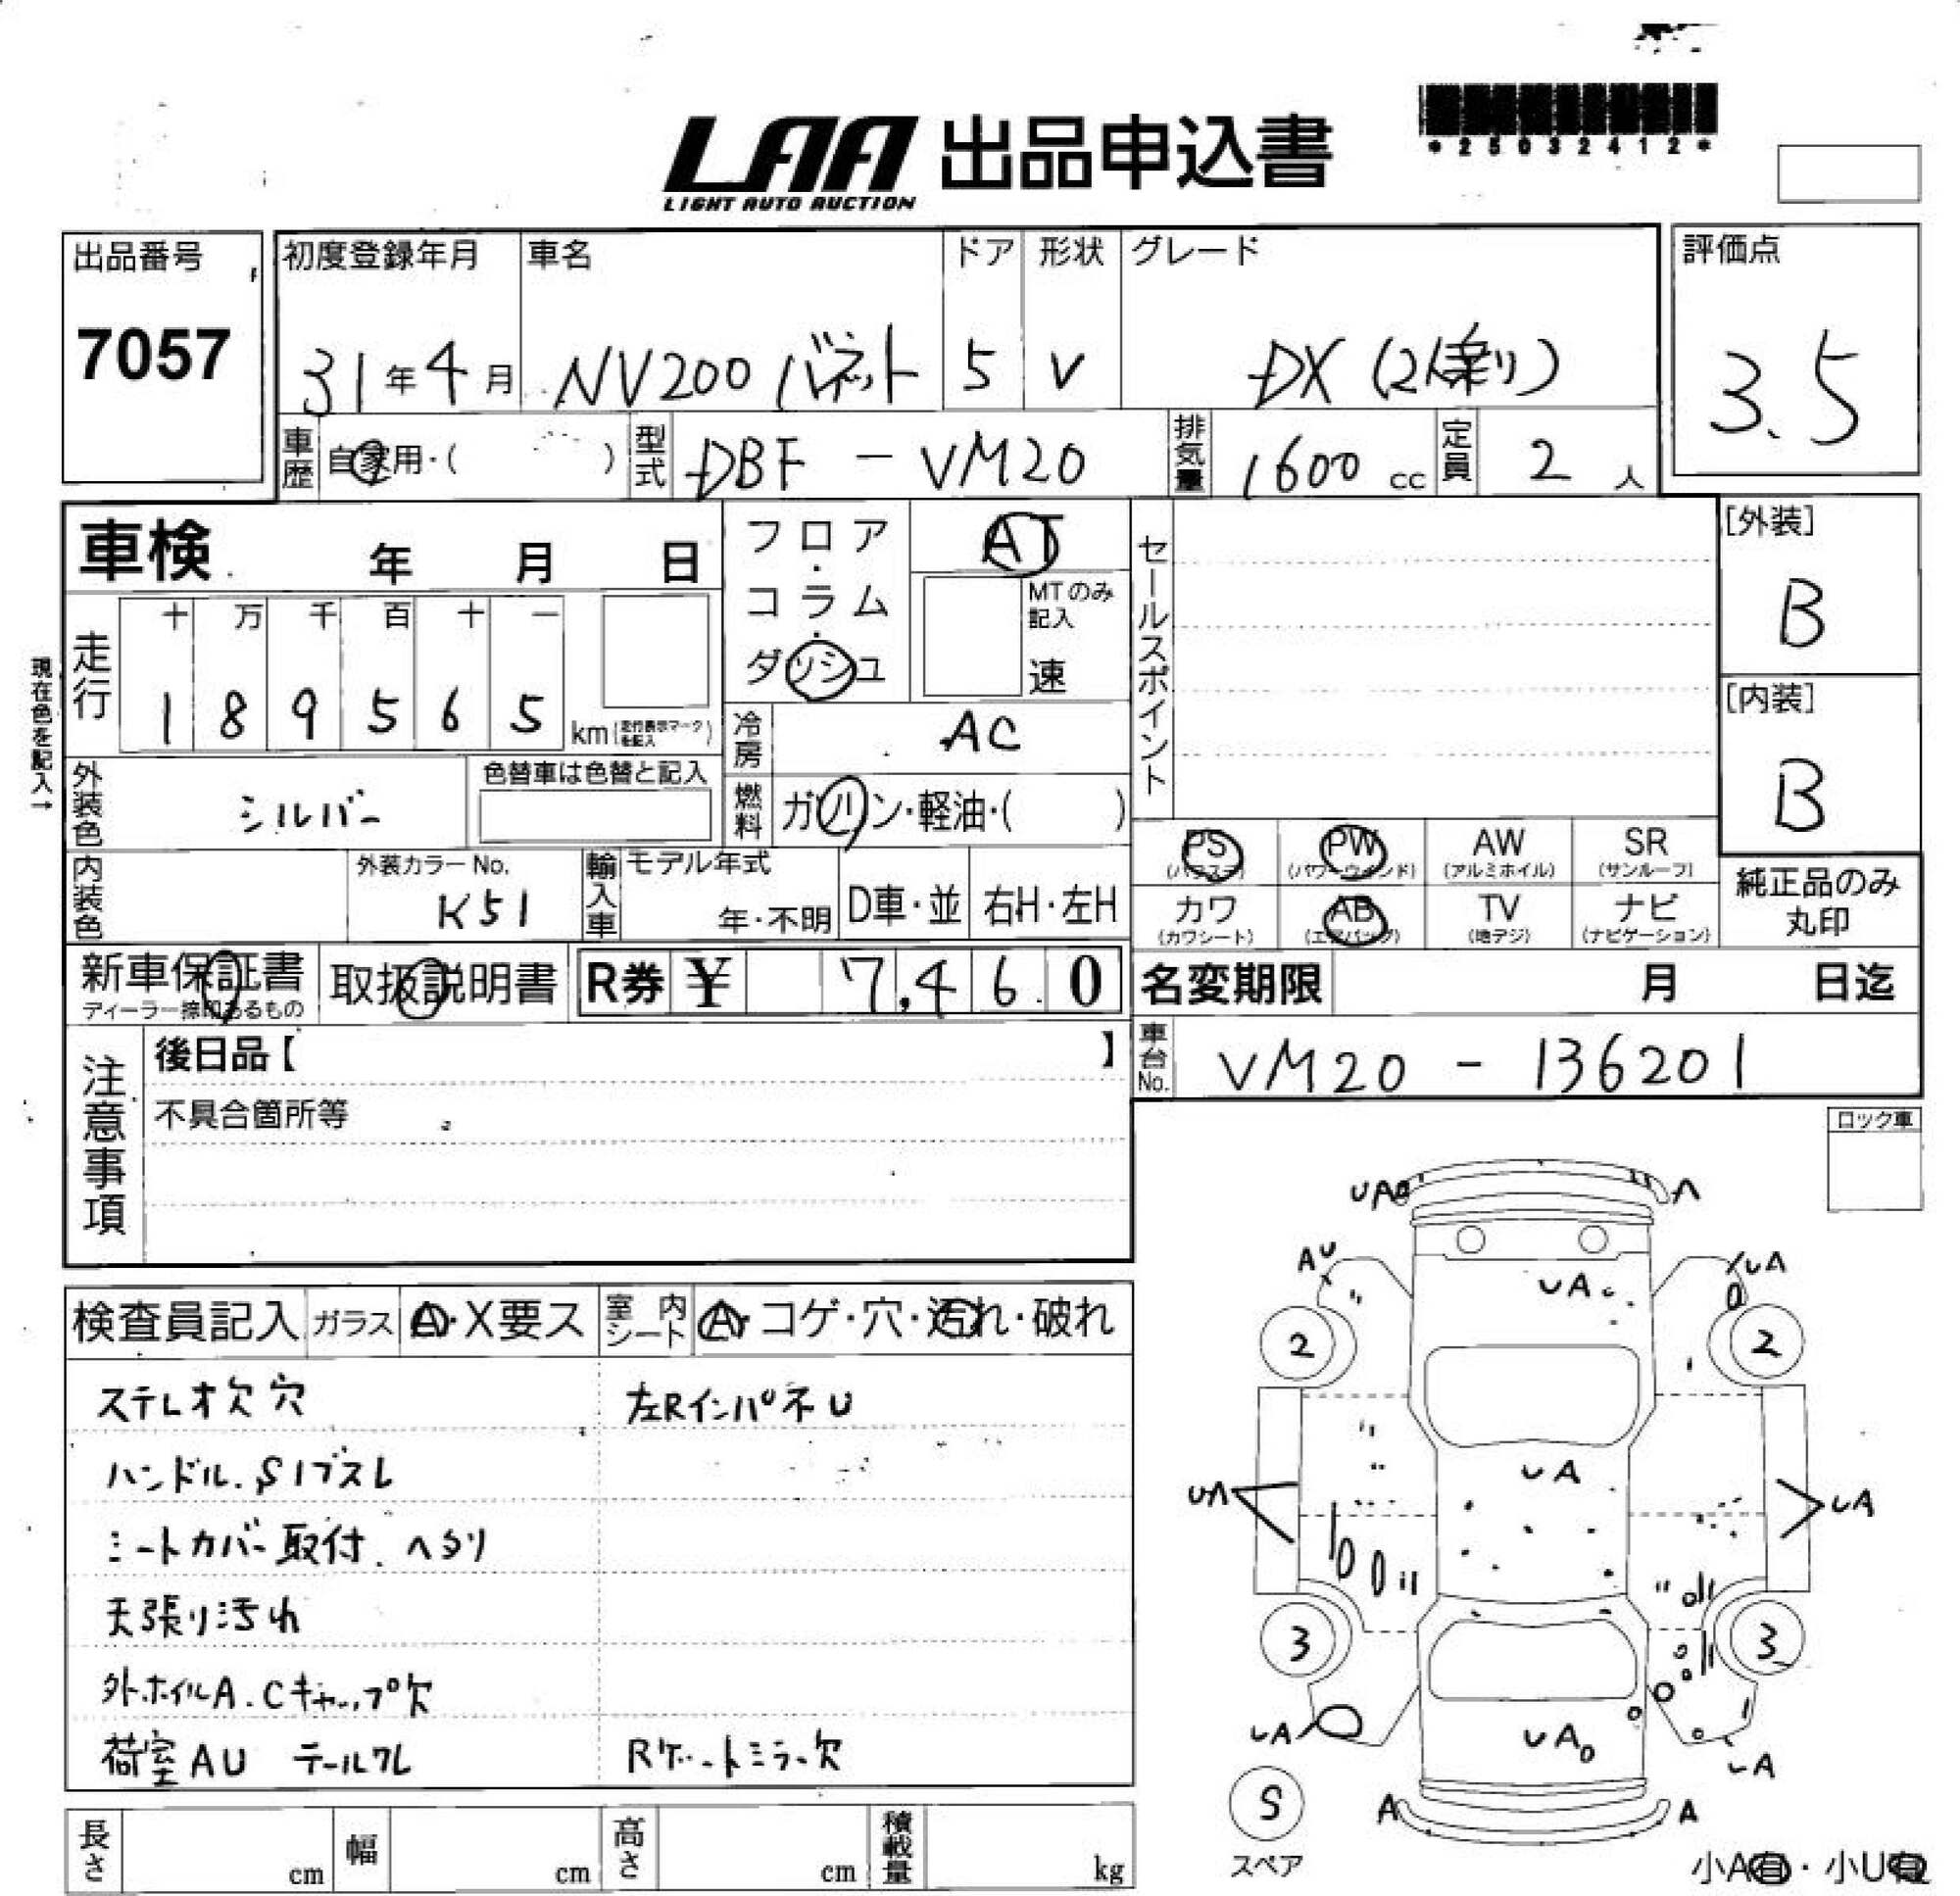 LAA 出品申込書
LIGHT AUTO AUCTION
*25032412*
出品番号
7057
初度登録年月 車名 ドア 形状 グレード
31年4月 NV200 バネット 5 V DX (2人乗り)
評価点
3.5
車歴 自家用・( ) 型式 DBF - VM20 排気量 1600 cc 定員 2 人
車検 年 月 日
フロア・コラム・ダッシュ
AT
MTのみ記入
速
セールスポイント
[外装]
B
[内装]
B
現在色を記入→
走行
十 万 千 百 十 一
1 8 9 5 6 5 km(走行表示マークを記入)
冷房 AC
外装色 シルバー 色替車は色替と記入
燃料 ガソリン・軽油・( )
PS AW SR
PW
(パワステ) (パワーウインド) (アルミホイル) (サンルーフ)
カワ AB TV ナビ
(カワシート) (エアバッグ) (地デジ) (ナビゲーション)
純正品のみ
丸印
内装色 外装カラーNo. K51
輸入車 モデル年式 年・不明 D車・並 右H・左H
新車保証書 取扱説明書 R券 ¥ 7,460
ディーラー捺印あるもの
名変期限 月 日迄
車台No. VM20 - 136201
注意事項
後日品【 】
不具合箇所等
ロック車
検査員記入 ガラス A・X要ス 室内シート A・コゲ・穴・汚れ・破れ
ステレオ欠穴 左RインパネU
ハンドル.SIブスレ
シートカバー取付.ヘタリ
天張り汚れ
外.ホイルA.Cキャップ欠
荷室AU テールワレ Rゲートミラー欠
UA A
AU UA
UA
2 2
UA
UA UA
3 3
UA UA UA
S
スペア
A A
小A有・小U有
長さ cm 幅 cm 高さ cm 積載量 kg